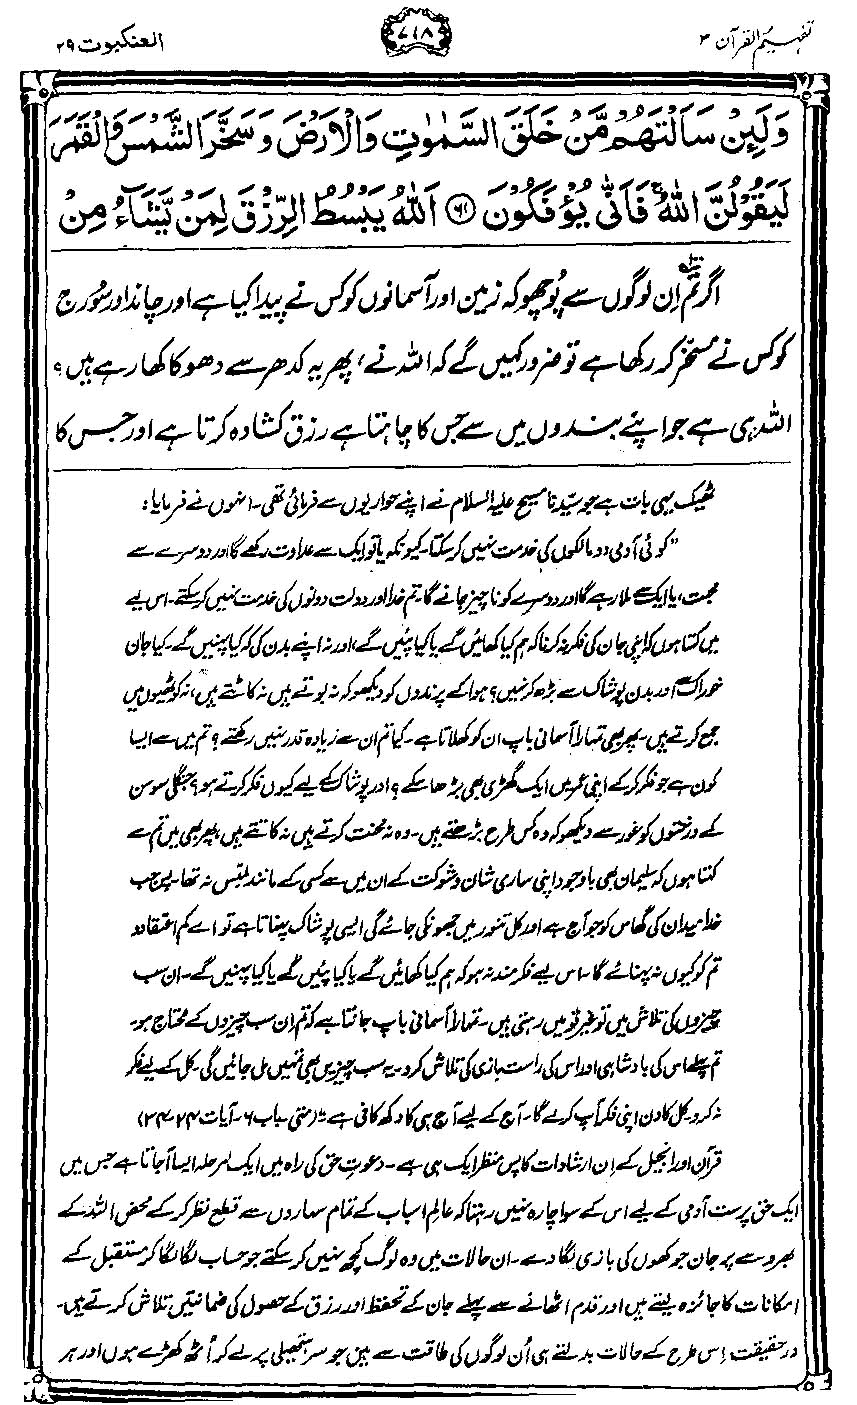 تفہیم القرآن ۳
۷۱۸
العنکبوت ۲۹
وَلَئِنْ سَاَلْتَهُمْ مَّنْ خَلَقَ السَّمٰوٰتِ وَالْاَرْضَ وَسَخَّرَ الشَّمْسَ وَالْقَمَرَ
لَيَقُوْلُنَّ اللّٰهُ ۚ فَاَنّٰى يُؤْفَكُوْنَ ﴿۶۱﴾ اَللّٰهُ يَبْسُطُ الرِّزْقَ لِمَنْ يَّشَآءُ مِنْ
اگر تم اِن لوگوں سے پُوچھو کہ زمین اور آسمانوں کو کس نے پیدا کیا ہے اور چاند اور سُورج
کو کس نے مسخّر کر رکھا ہے تو ضرور کہیں گے کہ اللہ نے، پھر یہ کدھر سے دھوکا کھا رہے ہیں؟
اللہ ہی ہے جو اپنے بندوں میں سے جس کا چاہتا ہے رزق کشادہ کرتا ہے اور جس کا
ٹھیک یہی بات ہے جو سیّدنا مسیح علیہ السلام نے اپنے حواریوں سے فرمائی تھی۔ انہوں نے فرمایا:
”کوئی آدمی دو مالکوں کی خدمت نہیں کر سکتا، کیونکہ یا تو ایک سے عداوت رکھے گا اور دوسرے سے
محبت، یا ایک سے ملا رہے گا اور دوسرے کو ناچیز جانے گا۔ تم خدا اور دولت دونوں کی خدمت نہیں کر سکتے۔ اس لیے
میں کہتا ہوں کہ اپنی جان کی فکر نہ کرنا کہ ہم کیا کھائیں گے یا کیا پئیں گے، اور نہ اپنے بدن کی کہ کیا پہنیں گے۔ کیا جان
خوراک سے اور بدن پوشاک سے بڑھ کر نہیں؟ ہوا کے پرندوں کو دیکھو کہ نہ بوتے ہیں نہ کاٹتے ہیں، نہ کوٹھیوں میں
جمع کرتے ہیں۔ پھر بھی تمہارا آسمانی باپ ان کو کھلاتا ہے۔ کیا تم ان سے زیادہ قدر نہیں رکھتے؟ تم میں سے ایسا
کون ہے جو فکر کر کے اپنی عمر میں ایک گھڑی بھی بڑھا سکے؟ اور پوشاک کے لیے کیوں فکر کرتے ہو؟ جنگلی سوسن
کے درختوں کو غور سے دیکھو کہ وہ کس طرح بڑھتے ہیں۔ وہ نہ محنت کرتے ہیں نہ کاتتے ہیں، پھر بھی میں تم سے
کہتا ہوں کہ سلیمان بھی باوجود اپنی ساری شان و شوکت کے ان میں سے کسی کے مانند ملبّس نہ تھا۔ پس جب
خدا میدان کی گھاس کو جو آج ہے اور کل تنور میں جھونکی جائے گی ایسی پوشاک پہناتا ہے تو اے کم اعتقادو
تم کو کیوں نہ پہنائے گا۔ اس لیے فکرمند نہ ہو کہ ہم کیا کھائیں گے یا کیا پئیں گے یا کیا پہنیں گے۔ ان سب
چیزوں کی تلاش میں تو غیر قومیں رہتی ہیں۔ تمہارا آسمانی باپ جانتا ہے کہ تم ان سب چیزوں کے محتاج ہو۔
تم پہلے اس کی بادشاہی اور اس کی راست بازی کی تلاش کرو۔ یہ سب چیزیں بھی تمہیں مل جائیں گی۔ کل کے لیے فکر
نہ کرو۔ کل کا دن اپنی فکر آپ کر لے گا۔ آج کے لیے آج ہی کا دکھ کافی ہے“ (متی۔ باب ۶۔ آیات ۲۴۔۳۴)
قرآن اور انجیل کے اِن ارشادات کا پس منظر ایک ہی ہے۔ دعوتِ حق کی راہ میں ایک مرحلہ ایسا آجاتا ہے جس میں
ایک حق پرست آدمی کے لیے اس کے سوا چارہ نہیں رہتا کہ عالمِ اسباب کے تمام سہاروں سے قطع نظر کر کے محض اللہ کے
بھروسے پر جان جوکھوں کی بازی لگا دے۔ ان حالات میں وہ لوگ کچھ نہیں کر سکتے جو حساب لگا لگا کر مستقبل کے
امکانات کا جائزہ لیتے ہیں اور قدم اٹھانے سے پہلے جان کے تحفظ اور رزق کے حصول کی ضمانتیں تلاش کرتے ہیں۔
درحقیقت اِس طرح کے حالات بدلتے ہی اُن لوگوں کی طاقت سے ہیں جو سر ہتھیلی پر لے کر اُٹھ کھڑے ہوں اور ہر